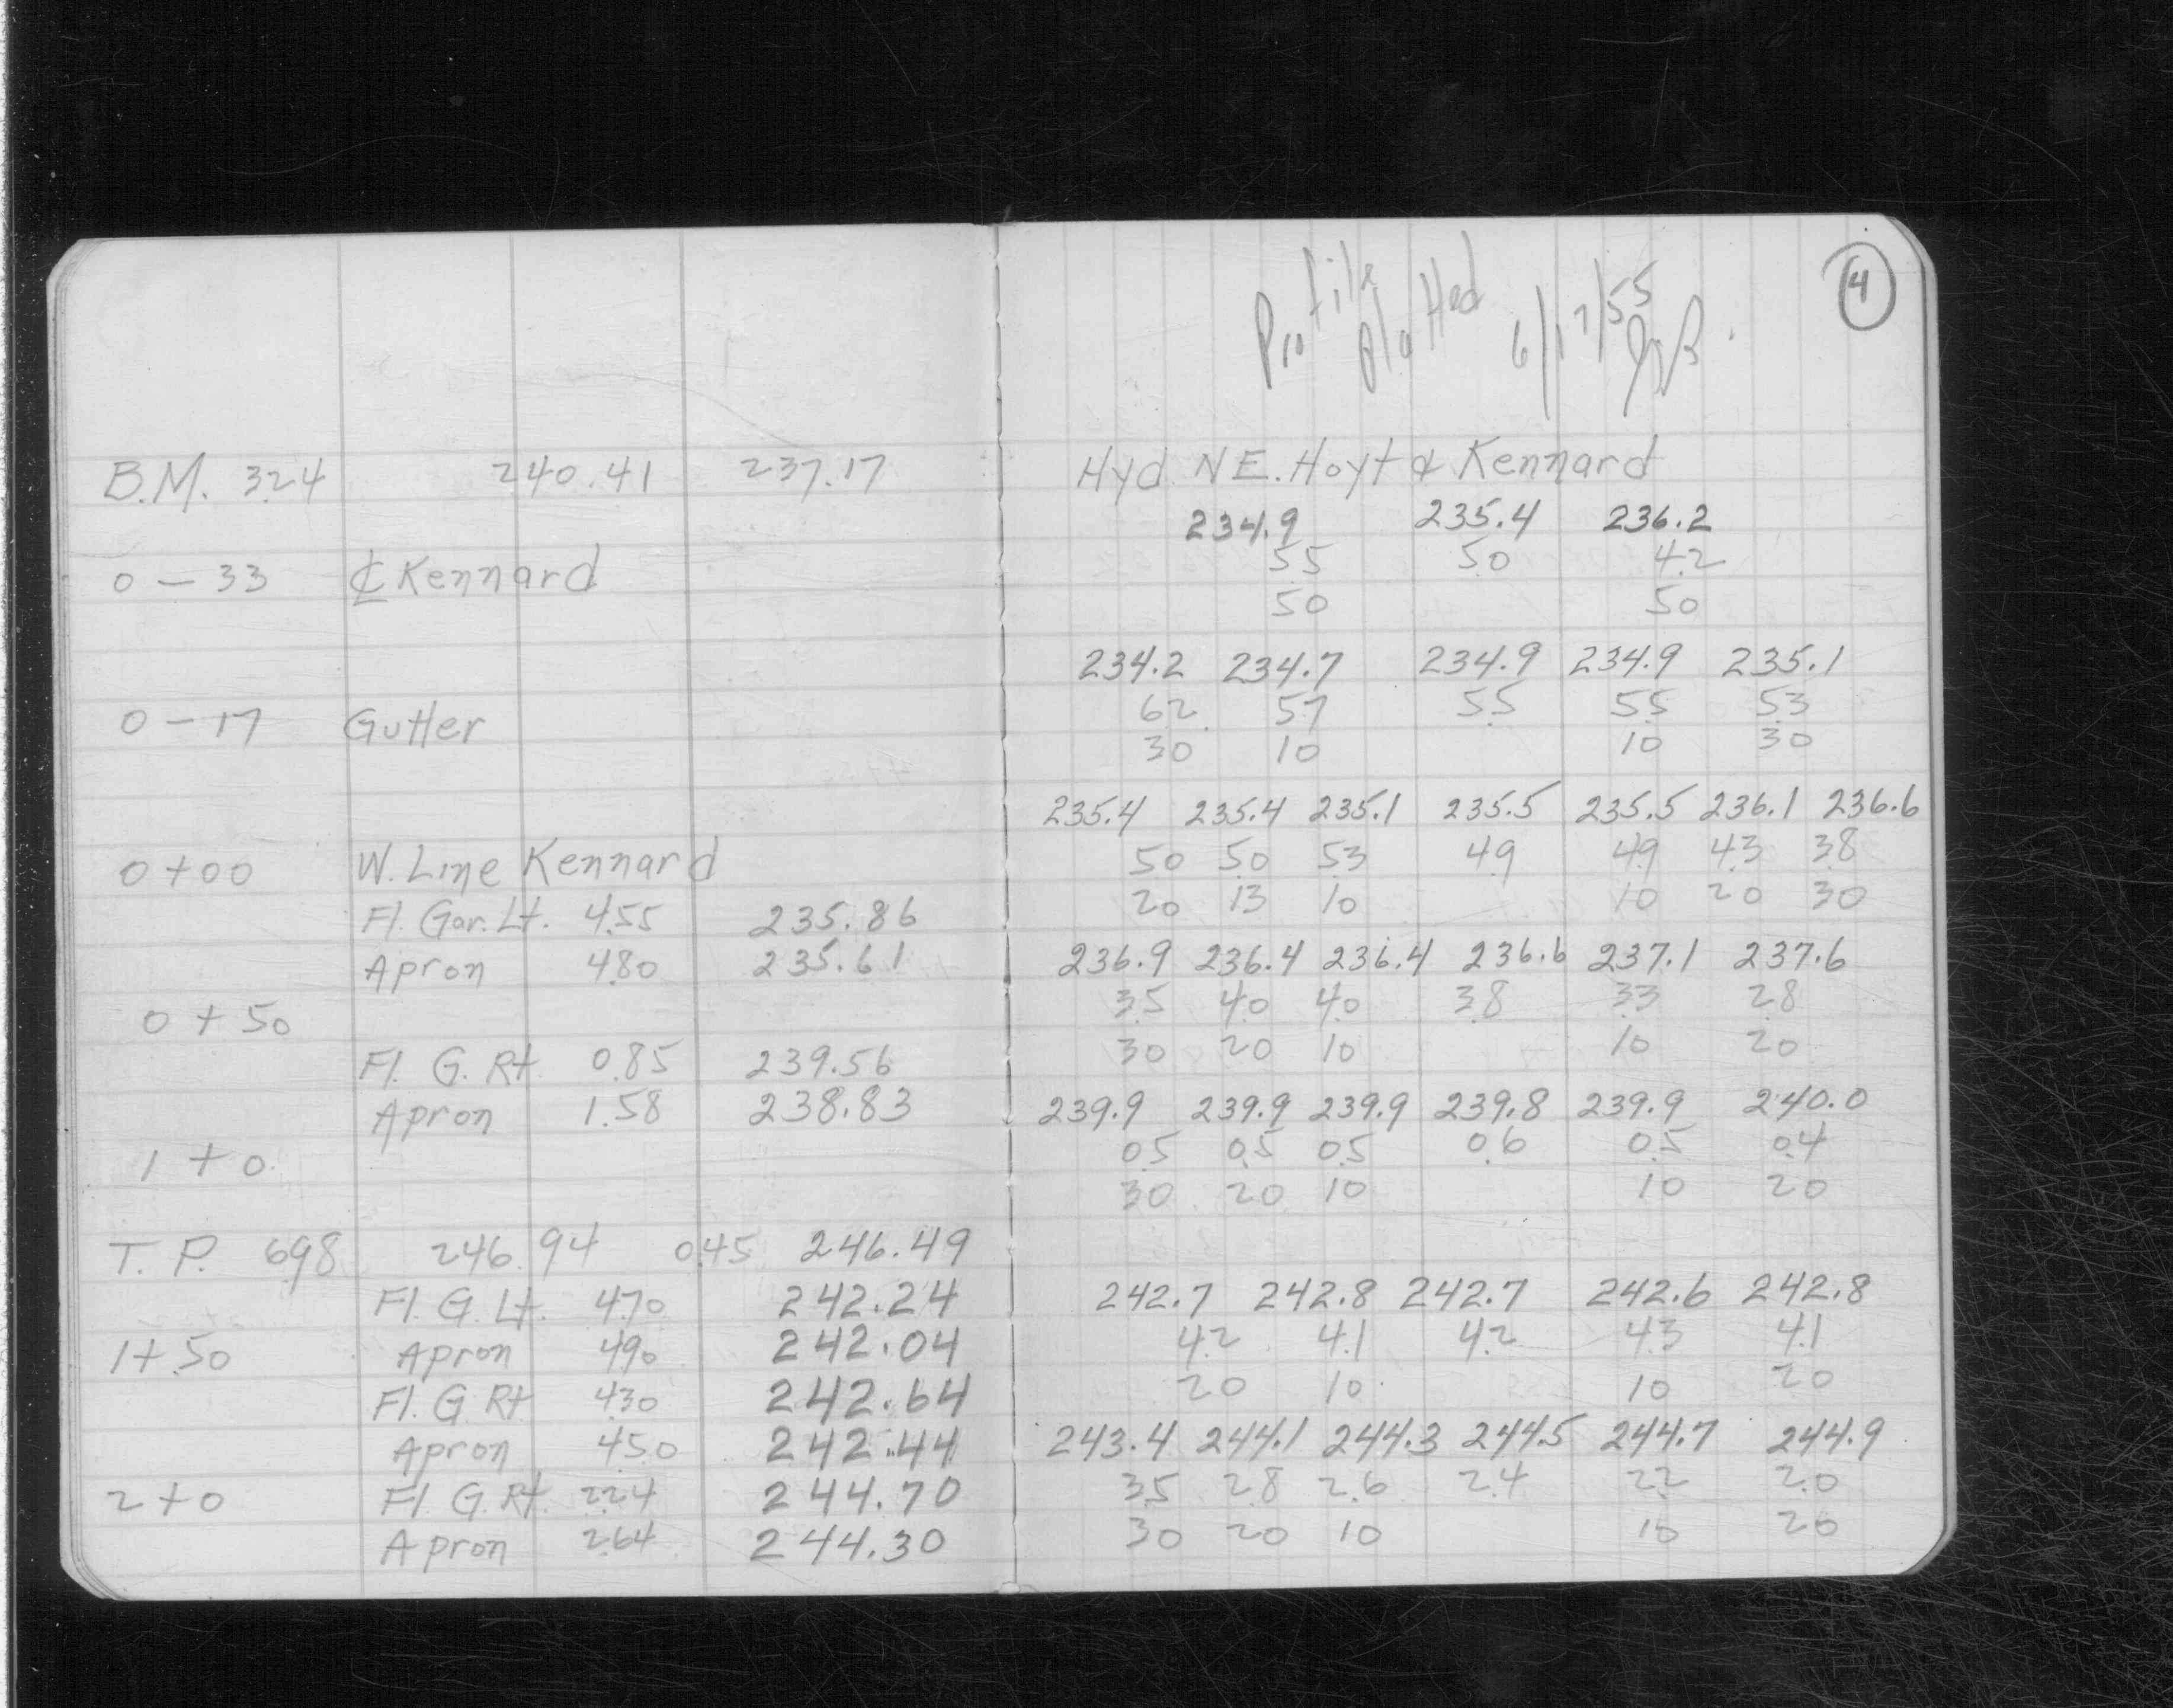 B.M. 3.24 240.41 237.17
0 - 33 ℄ Kennard
0 - 17 Gutter
0 + 00 W. Line Kennard
Fl. Gar. Lt. 4.55 235.86
Apron 4.80 235.61
0 + 50
Fl. G. Rt. 0.85 239.56
Apron 1.58 238.83
1 + 0
T. P. 6.98 246.94 0.45 246.49
Fl. G. Lt. 4.70 242.24
1 + 50 Apron 4.90 242.04
Fl. G. Rt 4.30 242.64
Apron 4.50 242.44
2 + 0 Fl. G. Rt. 2.24 244.70
Apron 2.64 244.30
4
Profile
Plotted 6/17/55
Hyd. N.E. Hoyt & Kennard
234.9 235.4 236.2
5.5 5.0 4.2
50 50
234.2 234.7 234.9 234.9 235.1
6.2 5.7 5.5 5.5 5.3
30 10 10 30
235.4 235.4 235.1 235.5 235.5 236.1 236.6
5.0 5.0 5.3 4.9 4.9 4.3 3.8
20 13 10 10 20 30
236.9 236.4 236.4 236.6 237.1 237.6
3.5 4.0 4.0 3.8 3.3 2.8
30 20 10 10 20
239.9 239.9 239.9 239.8 239.9 240.0
0.5 0.5 0.5 0.6 0.5 0.4
30 20 10 10 20
242.7 242.8 242.7 242.6 242.8
4.2 4.1 4.2 4.3 4.1
20 10 10 20
243.4 244.1 244.3 244.5 244.7 244.9
3.5 2.8 2.6 2.4 2.2 2.0
30 20 10 10 20